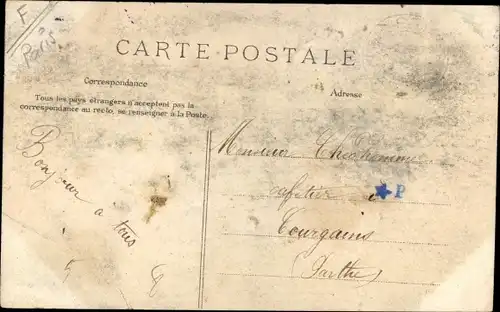 F
Paris
CARTE POSTALE
Correspondance
Adresse
Tous les pays étrangers n'acceptent pas la
correspondance au recto, se renseigner à la Poste.
Bonjour a tous
Monsieur
cafetier
P
Courgains
(Sarthe)